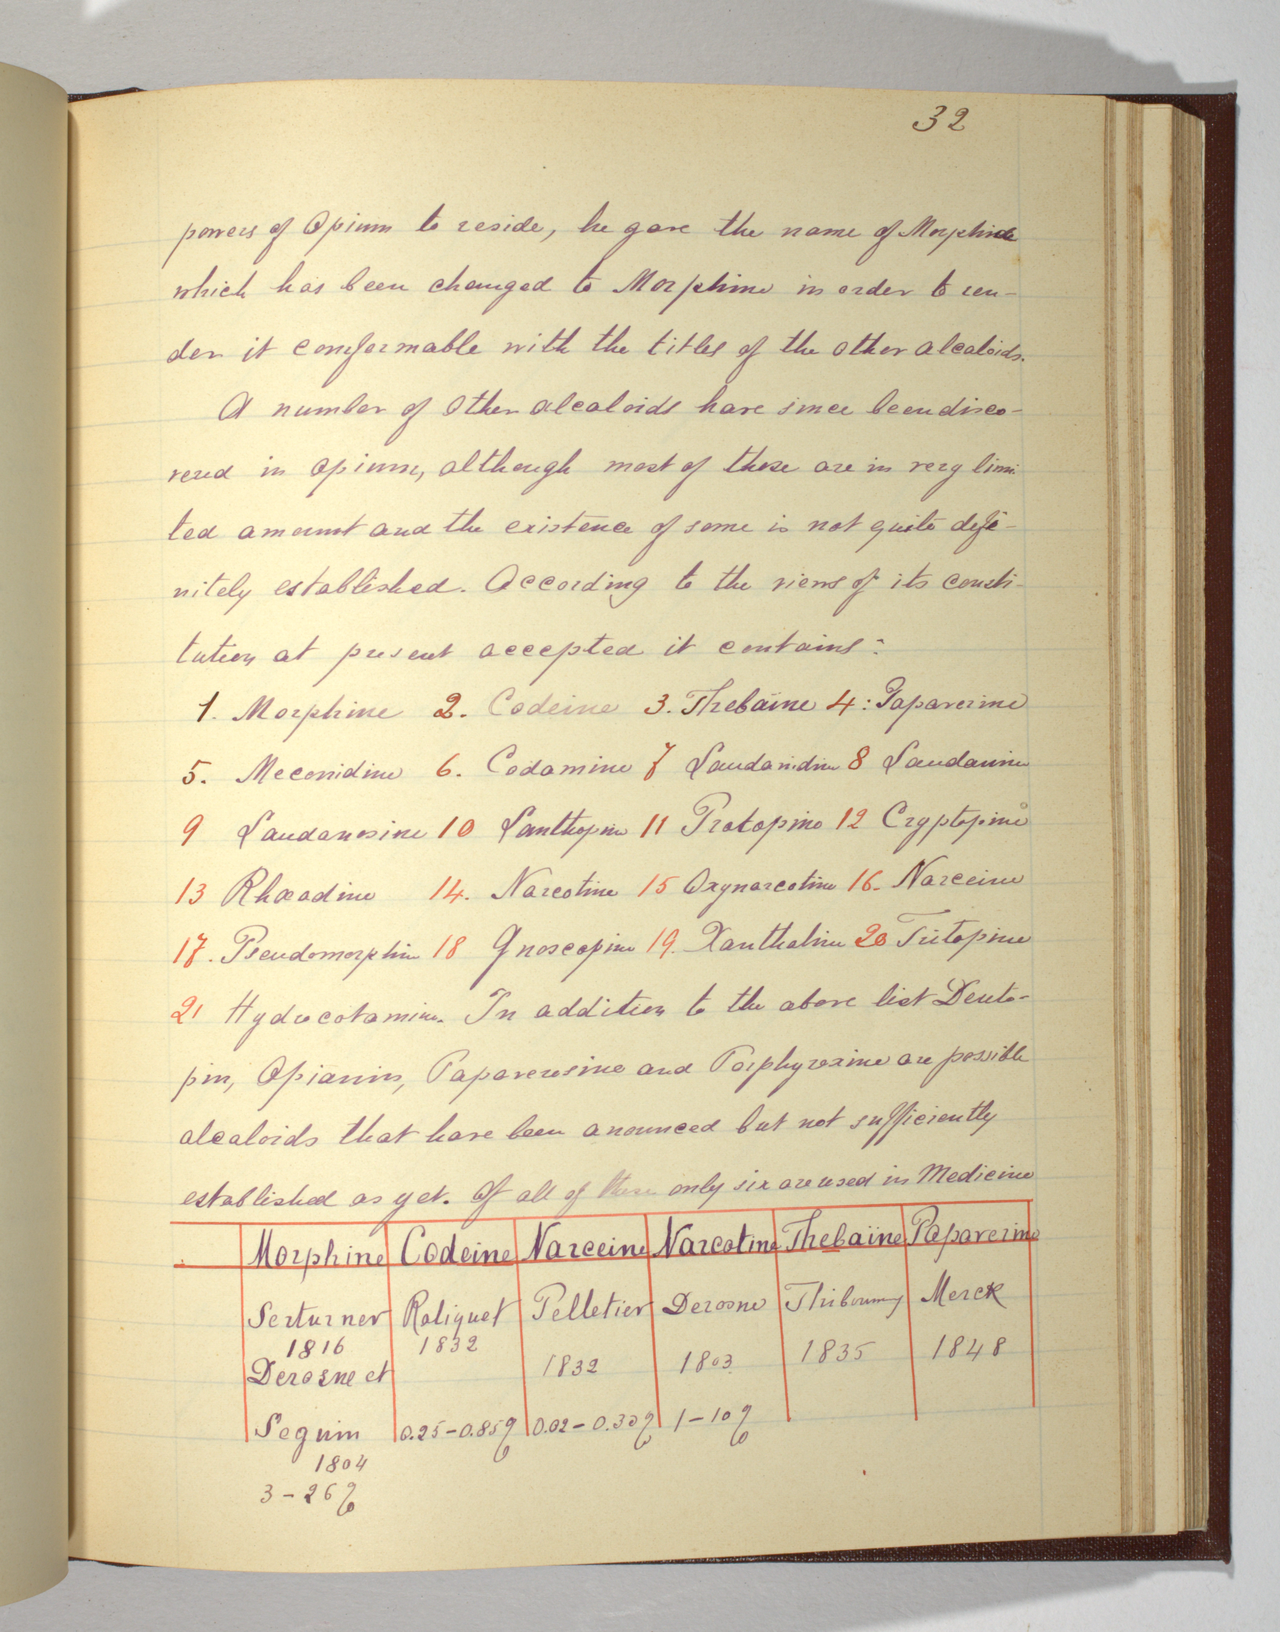 32
powers of Opium to reside, he gave the name of Morphide
which has been changed to Morphine in order to ren-
der it comformable with the titles of the other alcaloids.
A number of other alcaloids have since been disco-
vered in opium, although most of these are in very limi
ted amount and the existence of some is not quite defi-
nitely established. According to the views of its consti-
tution at present accepted it contains:
1. Morphine 2. Codeine 3. Thebaïne 4: Papaverine
5. Meconidine 6. Codamine 7 Laudanidine 8 Laudanine
9 Laudanosine 10 Lanthopine 11 Protopine 12 Cryptopine
13 Rhoeadine 14. Narcotine 15 Oxynarcotine 16. Narceine
17. Pseudomorphine 18 Gnoscopine 19. Xanthaline 20 Tritopine
21 Hydrocotamine. In addition to the above list Deuto-
pin, Opianin, Papaverosine and Porphyroxine are possible
alcaloids that have been anounced but not sufficiently
established as yet. Of all of these only six are used in Medicine
Morphine Codeine Narceine Narcotine Thebaïne Papaverine
Serturner Robiquet Pelletier Derosne Thiboumy Merck
1816 1832 1832 1803 1835 1848
Derosne et
Seguin 0.25-0.85% 0.02-0.30% 1-10%
1804
3-26%